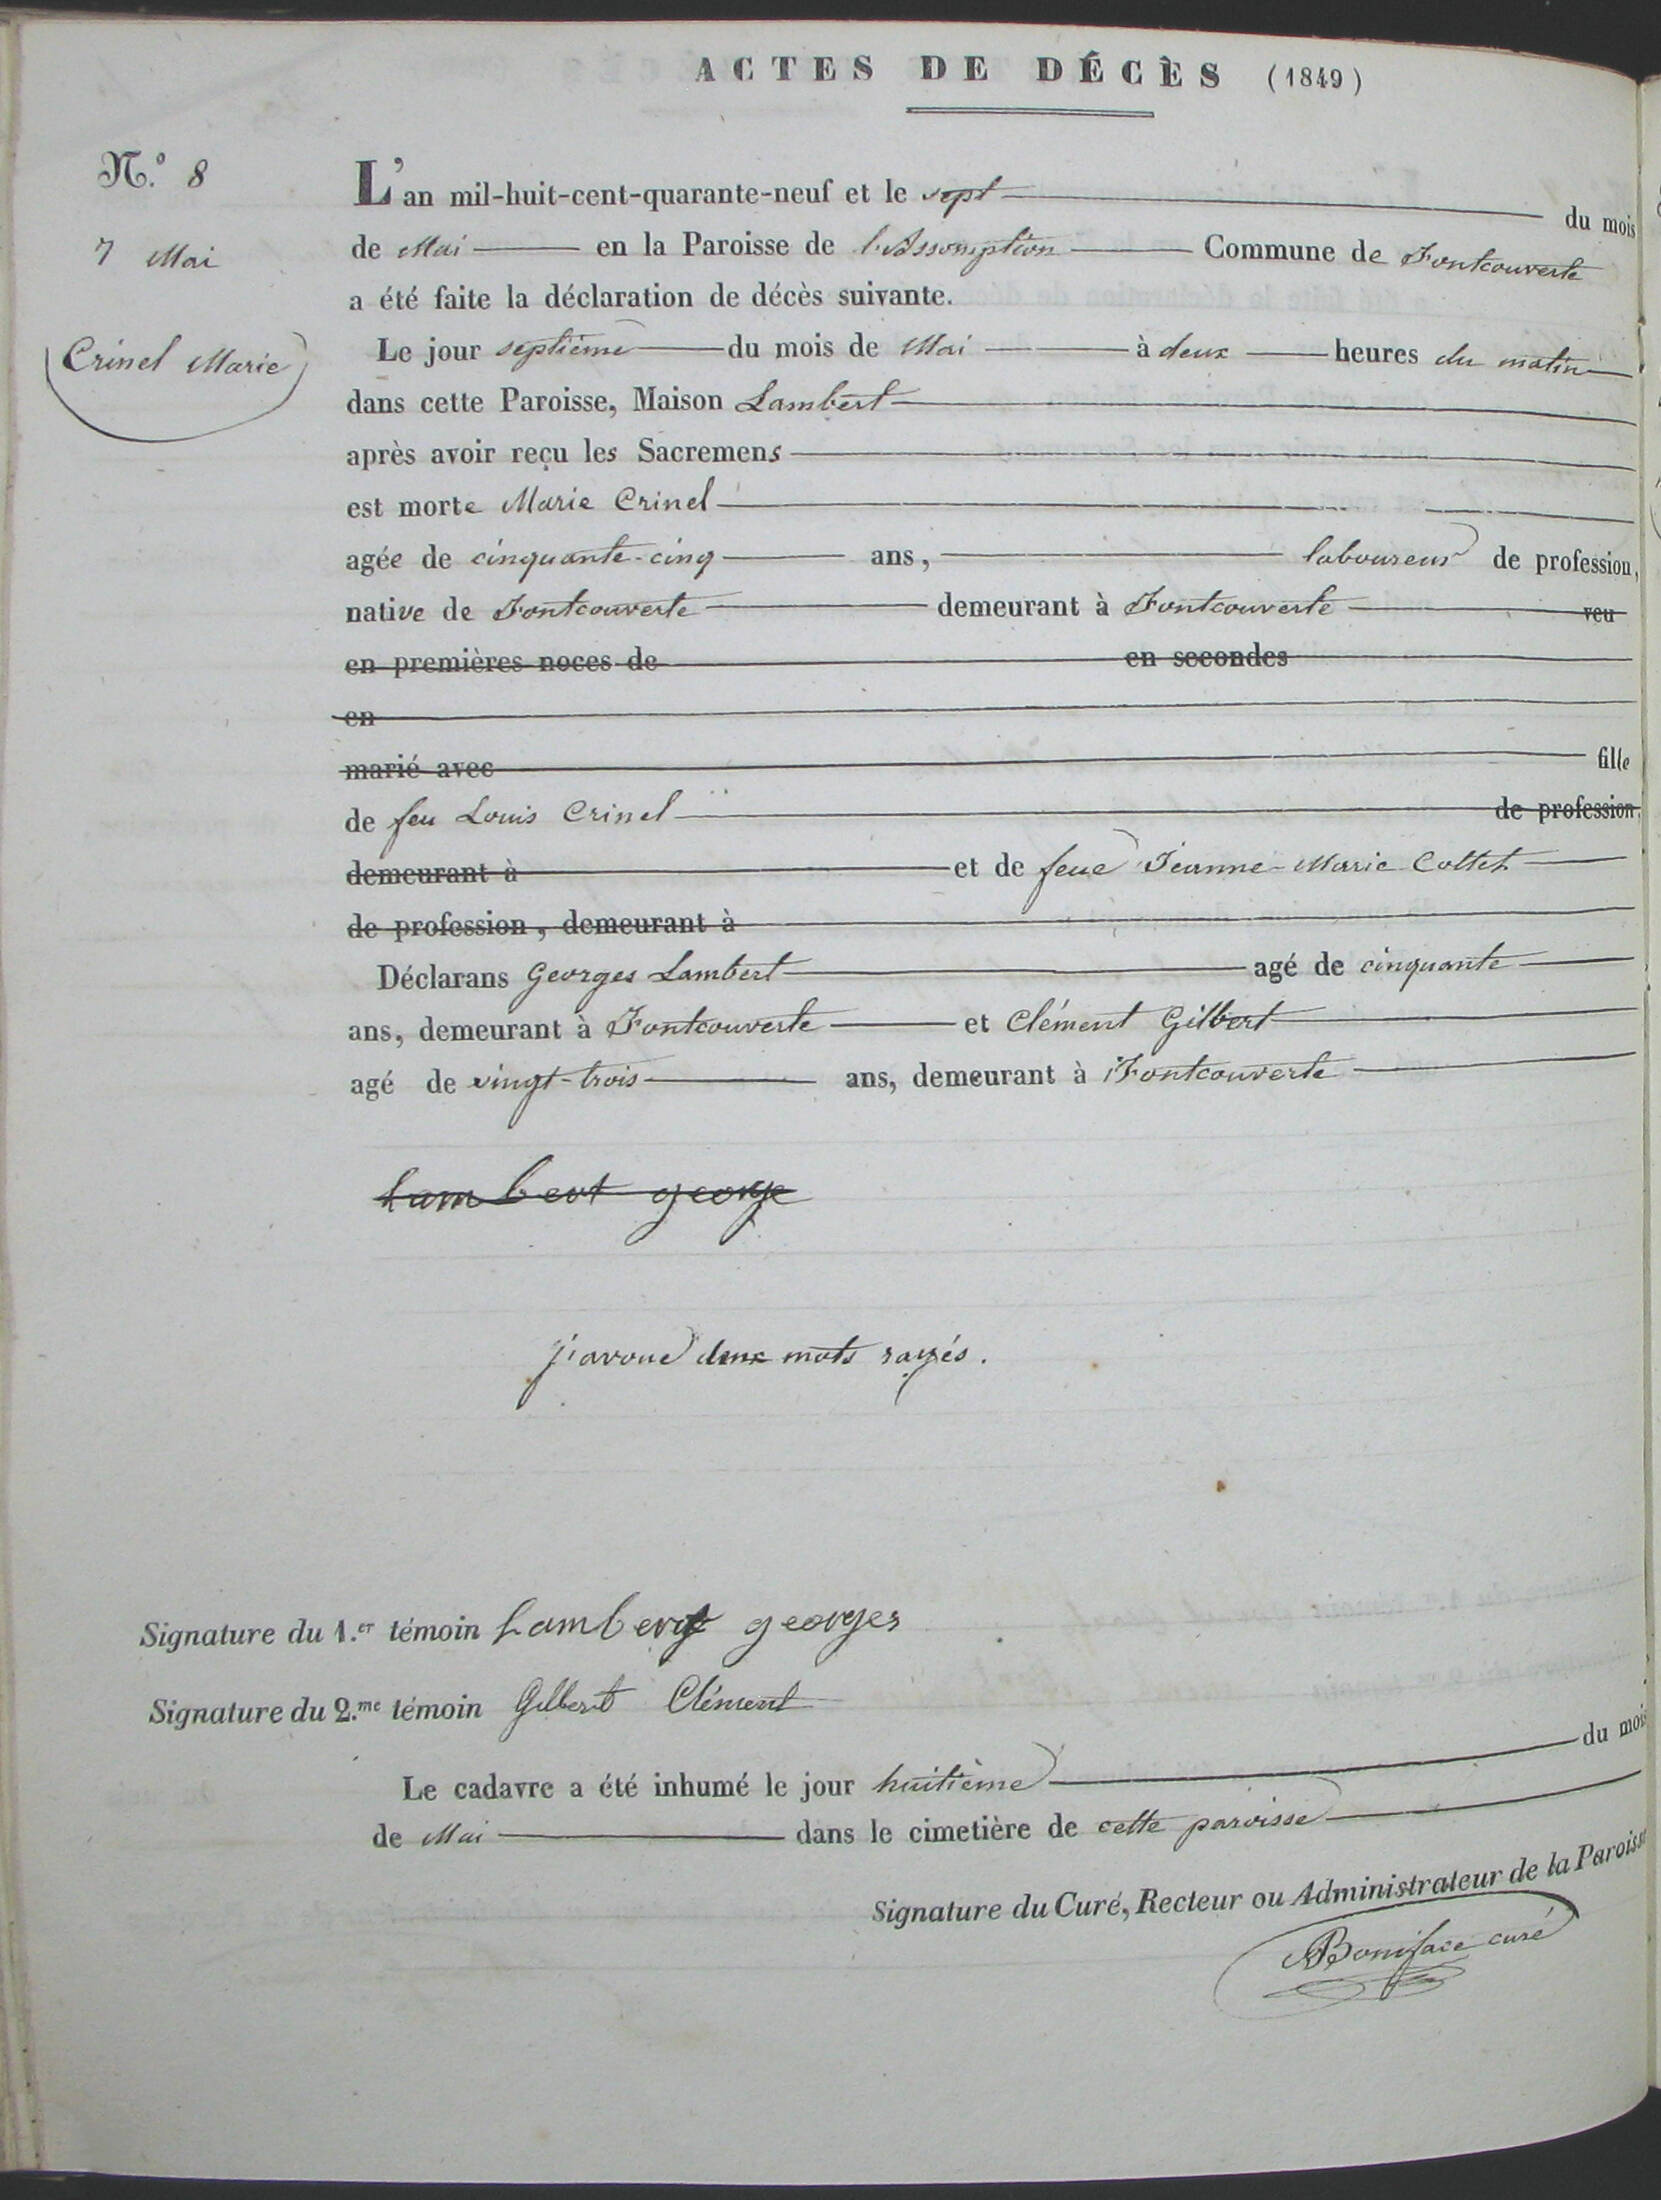 ACTES DE DÉCÈS (1849)
N.º 8
7 Mai
Crinel Marie
L'an mil-huit-cent-quarante-neuf et le sept du mois
de Mai en la Paroisse de l'Assomption Commune de Fontcouverte
a été faite la déclaration de décès suivante.
Le jour septième du mois de Mai à deux heures du matin
dans cette Paroisse, Maison Lambert
après avoir reçu les Sacremens
est morte Marie Crinel
agée de cinquante-cinq ans, laboureur de profession,
native de Fontcouverte demeurant à Fontcouverte veu
en premières noces de en secondes
en
marié avec fille
de feu Louis Crinel de profession,
demeurant à et de feue Jeanne-Marie Collet
de profession, demeurant à
Déclarans Georges Lambert agé de cinquante
ans, demeurant à Fontcouverte et Clément Gilbert
agé de vingt-trois ans, demeurant à Fontcouverte
Lambert george
j'avoue deux mots rayés.
Signature du 1.er témoin Lambert georges
Signature du 2.me témoin Gilbert Clément
Le cadavre a été inhumé le jour huitième du mois
de Mai dans le cimetière de cette paroisse
Signature du Curé, Recteur ou Administrateur de la Paroisse
Boniface curé